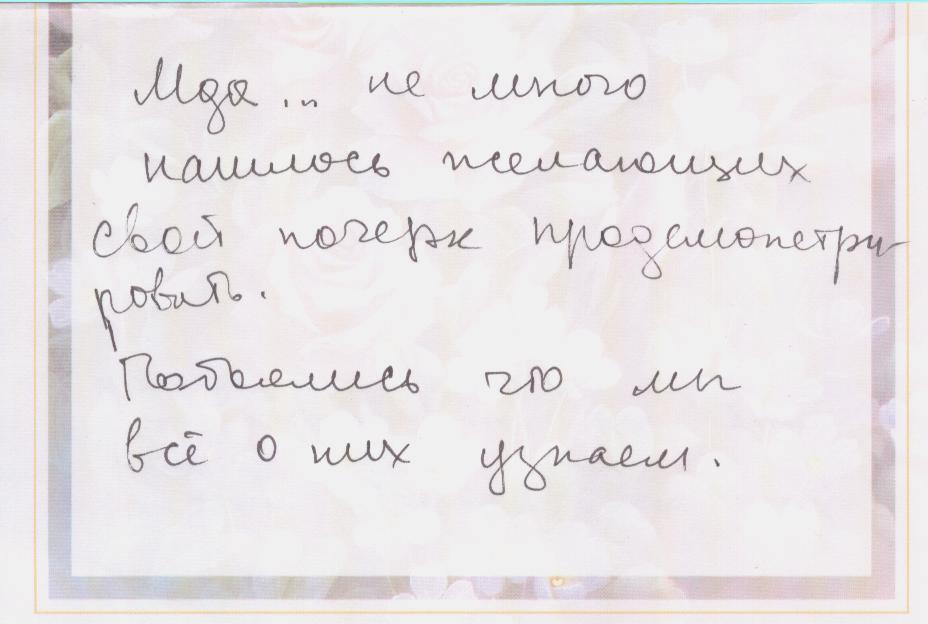 Мда... не много
нашлось желающих
свой почерк продемонстри-
ровать.
Побоялись что мы
всё о них узнаем.